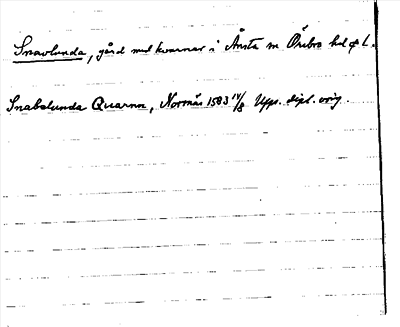 Snavlunda, gård med kvarnar i Ånsta sn Örebro hd o l.
Snabelunda Quarnn, Normås 1583 14/8 Upps. dipl. orig.